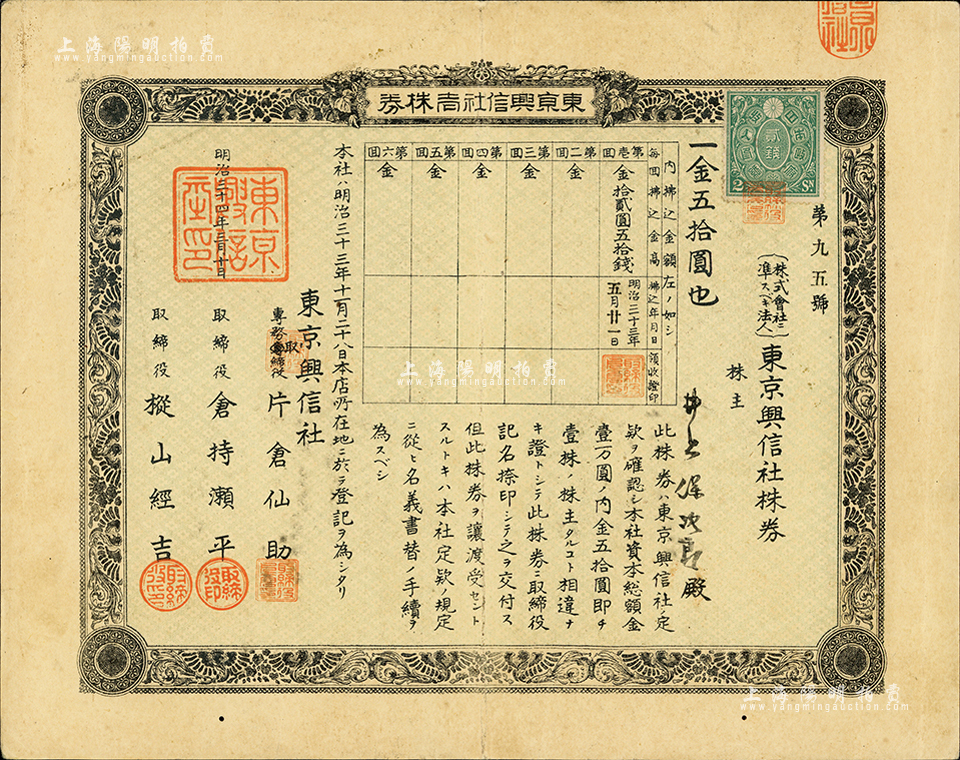 上海陽明拍賣
www.yangmingauction.com
東京興信社株券
貳錢
2 SN
第九五號
（株式會社ニ準スベキ法人）東京興信社株券
株主
井上保次郎殿
一金五拾圓也
内拂込金額左ノ如シ
毎回拂込金高
拂込年月日
領收證印
第壱回
金拾貳圓五拾錢
明治三十三年五月廿一日
第二回
金
第三回
金
第四回
金
第五回
金
第六回
金
此株券ハ東京興信社ノ定
欵ヲ確認シ本社資本総額金
壹万圓ノ内金五拾圓即チ
壹株ノ株主タルコト相違ナ
キ證トシテ此株券ニ取締役
記名捺印シテ之ヲ交付ス
但此株券ヲ讓渡受セント
スルトキハ本社定欵ノ規定
ニ從ヒ名義書替ノ手續ヲ
為スベシ
本社ハ明治三十三年十一月二十八日本店所在地ニ於テ登記ヲ為シタリ
明治三十四年三月十日
東京興信社
專務取締役 片倉仙助
取締役 倉持瀬平
取締役 樅山經吉
取締役印
上海陽明拍賣
www.yangmingauction.com
上海陽明拍賣
www.yangmingauction.com